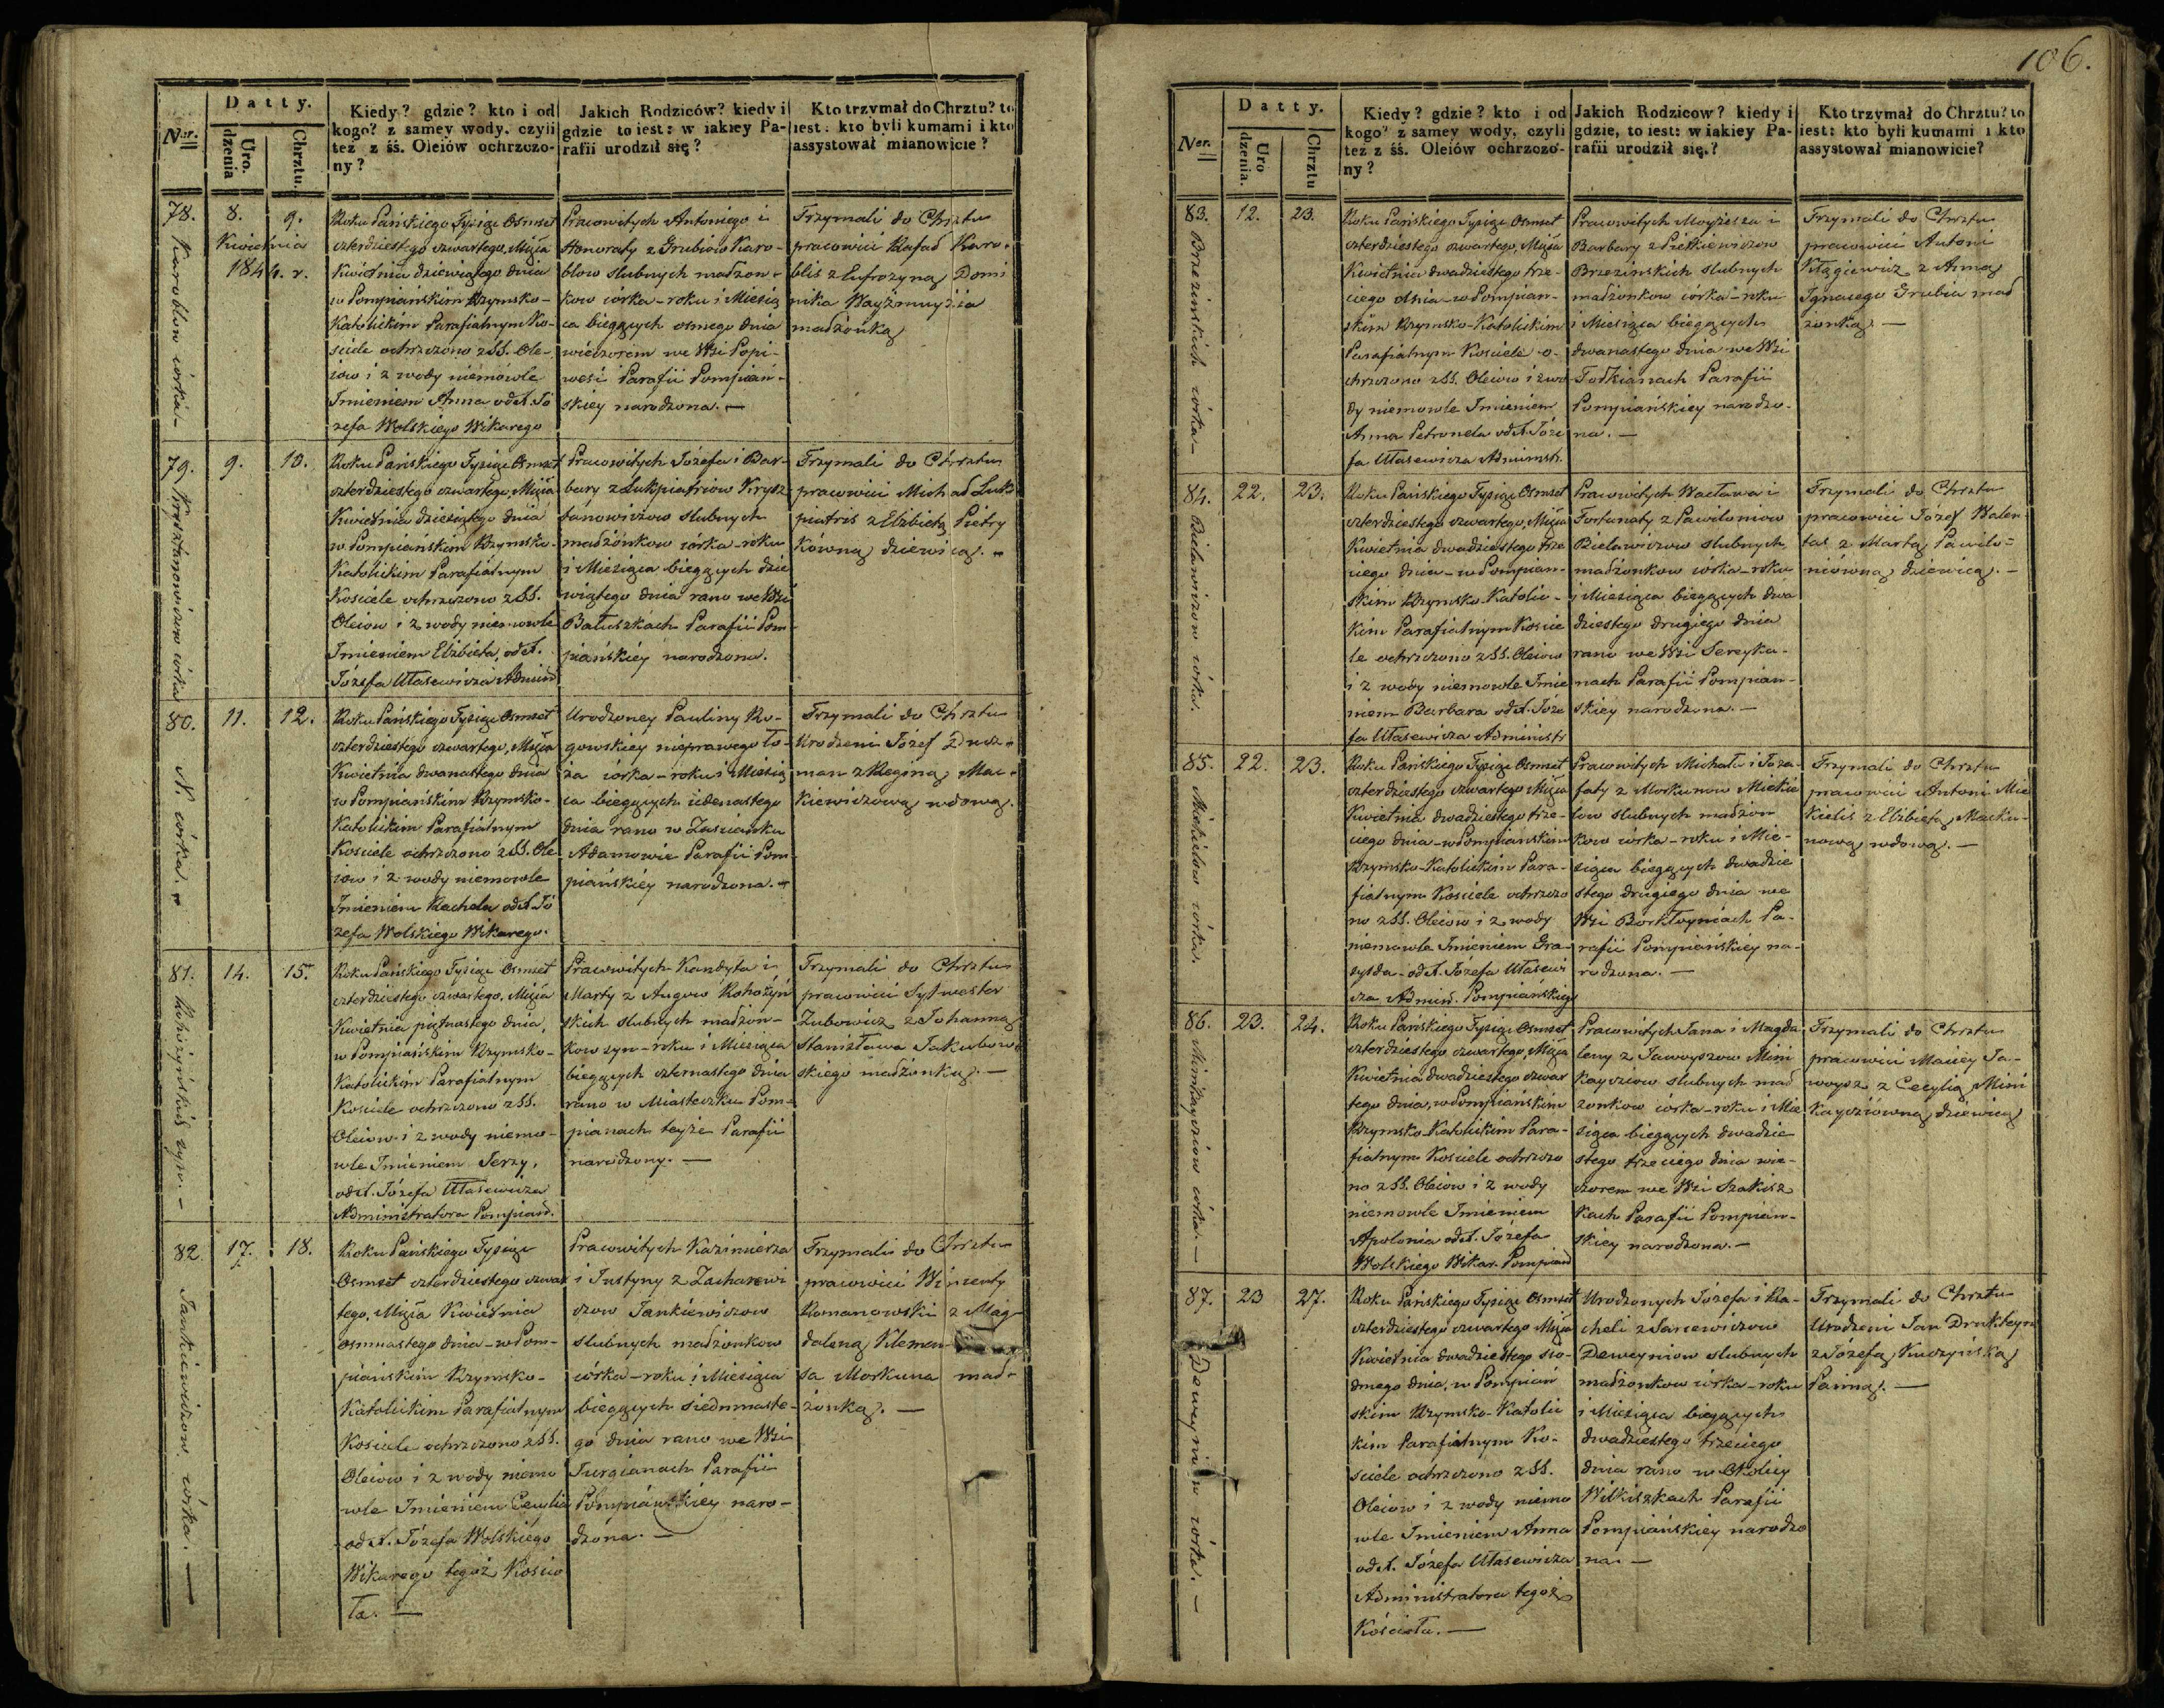 106.
Datty.
Ner.
Uro.
dzenia
Chrztu.
Kiedy? gdzie? kto i od
kogo? z samey wody, czyli
też z śś. Oleiów ochrzczo-
ny?
Jakich Rodziców? kiedy i
gdzie to iest: w iakiey Pa-
rafii urodził się?
Kto trzymał do Chrztu? to
iest: kto byli kumami i kto
assystował mianowicie?
78.
Karoblow córka -
8.
9.
Kwietnia
1844. r.
Roku Pańskiego Tysiąc Osmset
czterdziestego czwartego, Msca
Kwietnia dziewiątego dnia
w Pompiańskim Rzymsko-
Katolickim Parafialnym Ko-
sciele ochrzczono z SS. Ole-
iow i z wody niemowle
Imieniem Anna od X. Jó
zefa Wolskiego Wikarego
Pracowitych Antoniego i
Honoraty z Grubiow Karo-
blow slubnych madzon-
kow córka - roku i Miesią
ca biegących osmego dnia
wieczorem we Wsi Popi-
wesi Parafii Pompiań-
skiey narodzona. —
Trzymali do Chrztu
pracowici Rafał Karo-
blis z Eufrozyną Domi
nika Wayżmużia
madżonką
79.
Krysztanowiczow córka
9.
10.
Roku Pańskiego Tysiąc Osmset
czterdziestego czwartego, Msca
Kwietnia dziesiątego dnia
w Pompiańskim Rzymsko-
Katolickim Parafialnym
Kosciele ochrzczono z SS.
Oleiow i z wody niemowle
Imieniem Elżbieta, od X.
Józefa Ułasewicza Admin
Pracowitych Józefa i Bar-
bary z Łukpiatriow Krysz
tanowiczow slubnych
madżonkow córka - roku
i Miesiąca biegących dzie
wiątego dnia rano we Wsi
Bałuszkach Parafii Pom-
piańskiey narodzona.
Trzymali do Chrztu
pracowici Michał Łuk
piatris z Elżbietą Pietry
kówną dziewicą. -
80.
N. córka. -
11.
12.
Roku Pańskiego Tysiąc Osmset
czterdziestego czwartego, Msca
Kwietnia dwanastego dnia
w Pompiańskim Rzymsko-
Katolickim Parafialnym
Kosciele ochrzczono z SS. Ole
iow i z wody niemowle
Imieniem Rachela od X. Jó
zefa Wolskiego Wikarego.
Urodzoney Pauliny Ro-
gowskiey nieprawego ło-
ża córka - roku i Miesią
ca biegących iedenastego
dnia rano w Zascianku
Adamowie Parafii Pom-
piańskiey narodzona. -
Trzymali do Chrztu
Urodzeni Józef
man z Reginą Mac-
kiewiczową wdową.
81.
Rohożyńskich syn. -
14.
15.
Roku Pańskiego Tysiąc Osmset
czterdziestego czwartego, Msca
Kwietnia piętnastego dnia,
w Pompiańskim Rzymsko-
Katolickim Parafialnym
Kosciele ochrzczono z SS.
Oleiow i z wody niemo-
wle Imieniem Jerzy,
od X. Józefa Ułasewicza
Administratora Pompiań.
Pracowitych Kandyta i
Marty z Augow Rohożyń
skich slubnych madzon-
kow syn - roku i Miesiąca
biegących czternastego dnia
rano w Miasteczku Pom-
pianach teyże Parafii
narodzony. —
Trzymali do Chrztu
pracowici Sylwester
Zubowicz z Johanną
Stanisława Jakubow
skiego madżonką. —
82.
Jankiewiczow córka. —
17.
18.
Roku Pańskiego Tysiąc
Osmset czterdziestego czwar
tego, Msca Kwietnia
osmnastego dnia - w Pom-
piańskim Rzymsko-
Katolickim Parafialnym
Kosciele ochrzczono z SS.
Oleiow i z wody niemo
wle Imieniem Cecylia
od X. Józefa Wolskiego
Wikarego tegoż Koscio
ła. —
Pracowitych Kazimierza
i Justyny z Zacharewi
czow Jankiewiczow
slubnych madżonkow
córka - roku i Miesiąca
biegących siedmnaste-
go dnia rano we Wsi
Jurgianach Parafii
Pompiańskiey naro-
dzona. —
Trzymali do Chrztu
pracowici Wincenty
Romanowski z Mag-
daleną Klemen-
sa Morkuna mad-
żonką. —
Datty.
Ner.
Uro
dzenia.
Chrztu
Kiedy? gdzie? kto i od
kogo? z samey wody, czyli
też z śś. Oleiów ochrzczo-
ny?
Jakich Rodzicow? kiedy i
gdzie, to iest: w iakiey Pa-
rafii urodził się.?
Kto trzymał do Chrztu? to
iest: kto byli kumami i kto
assystował mianowicie?
83.
Brzezinskich córka -
12.
23.
Roku Pańskiego Tysiąc Osmset
czterdziestego czwartego, Msca
Kwietnia dwadziestego trze-
ciego dnia - w Pompian-
skim Rzymsko-Katolickim
Parafialnym Kosciele o-
chrzczono z SS. Oleiow i z wo
dy niemowle Imieniem
Anna Petronela od X. Józe
fa Ułasewicza Administr.
Pracowitych Moyżesza i
Barbary z Pietkiewiczow
Brzezinskich slubnych
madżonkow córka - roku
i Miesiąca biegących
dwanastego dnia we Wsi
Tołkianach Parafii
Pompiańskiey narodzo-
na. —
Trzymali do Chrztu
pracowici Antoni
z Anną
Ignacego Grubia mad
żonką. —
84.
Bielawiczow córka.
22.
23.
Roku Pańskiego Tysiąc Osmset
czterdziestego czwartego, Msca
Kwietnia dwadziestego trze
ciego dnia - w Pompian-
skim Rzymsko-Katolic-
kim Parafialnym Koscie
le ochrzczono z SS. Oleiow
i z wody niemowle Imie
niem Barbara od X. Józe
fa Ułasewicza Administr
Pracowitych Wacława i
Fortunaty z Pawiloniow
Bielawiczow slubnych
madżonkow córka - roku
i Miesiąca biegących dwa
dziestego drugiego dnia
rano we Wsi Sereyka-
nach Parafii Pompian-
skiey narodzona. —
Trzymali do Chrztu
pracowici Józef Walen
tas z Martą Pawilo-
niówną dziewicą. -
85.
Mickielow córka.
22.
23.
Roku Pańskiego Tysiąc Osmset
czterdziestego czwartego Msca
Kwietnia dwadziestego trze-
ciego dnia - w Pompianskim
Rzymsko-Katolickim Para-
fialnym Kosciele ochrzczo
no z SS. Oleiow i z wody
niemowle Imieniem Gra-
sylda - od X. Józefa Ułasewi
cza Admin. Pompiańskiego
Pracowitych Michała i Joza-
faty z Morkunow Mickie
low slubnych madżon
kow córka - roku i Mie-
siąca biegących dwadzie
stego drugiego dnia we
Wsi Borkłoyniach Pa-
rafii Pompiańskiey na-
rodzona. —
Trzymali do Chrztu
pracowici Antoni Mic
kielis z Elżbietą Macku-
nową wdową. —
86.
Minkayciow córka. —
23.
24.
Roku Pańskiego Tysiąc Osmset
czterdziestego czwartego, Msca
Kwietnia dwadziestego czwar
tego dnia, w Pompianskim
Rzymsko-Katolickim Para-
fialnym Kosciele ochrzczo
no z SS. Oleiow i z wody
niemowle Imieniem
Apolonia od X. Józefa
Wolskiego Wikar. Pompiań
Pracowitych Jana i Magda
leny z Jawoyszow Min
kayciow slubnych mad
zonkow córka - roku i Mie
siąca biegących dwadzie
stego trzeciego dnia wie-
czorem we Wsi Szakisz
kach Parafii Pompian-
skiey narodzona. —
Trzymali do Chrztu
pracowici Maciey Ja-
woysz z Cecylią Min
kayciówną dziewicą
87.
Deweyniow córka. —
23
27.
Roku Pańskiego Tysiąc Osmset
czterdziestego czwartego Msca
Kwietnia dwadziestego sio-
dmego dnia, w Pompiań
skim Rzymsko-Katolic
kim Parafialnym Ko-
sciele ochrzczono z SS.
Oleiow i z wody niemo
wle Imieniem Anna
od X. Józefa Ułasewicza
Administratora tegoż
Kościoła. —
Urodzonych Józefa i Ra-
cheli z Sarcewiczow
Deweyniow slubnych
madżonkow córka - roku
i Miesiąca biegących
dwadziestego trzeciego
dnia rano w Okolicy
Wilkiszkach Parafii
Pompiańskiey narodzo
na. —
Trzymali do Chrztu
Urodzeni Jan Drukteyn
z Józefą Kuczyńską
Panną. —